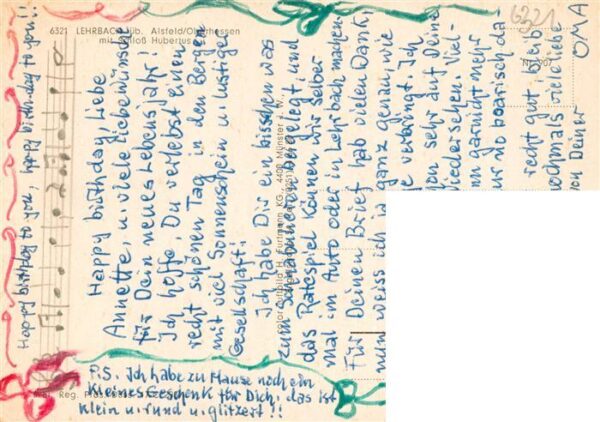 6321 LEHRBACH üb. Alsfeld/Oberhessen
mit Schloß Hubertus
6321
Happy birthday to you, happy birthday to you!!
Happy birthday, Liebe
Annette, u. viele liebe Wünsche
für Dein neues Lebensjahr.
Ich hoffe, Du verlebst einen
recht schönen Tag in den Bergen
mit viel Sonnenschein u. lustiger
Gesellschaft!
Ich habe Dir ein bisschen was
zum dazu gelegt, und
das Ratespiel können wir selber
mal im Auto oder in Lehrbach machen.
Für Deinen Brief hab vielen Dank,
nun weiss ich ja ganz genau, wie
e verbringt. Ich
en sehr auf Deine
Wiedersehen. Viel-
nn garnicht mehr
ur no boarisch da
recht gut, bleib
nochmals viele liebe
von Deiner OMA
P.S. Ich habe zu Hause noch ein
kleines Geschenk für Dich, das ist
klein u. rund u. glitzert!!